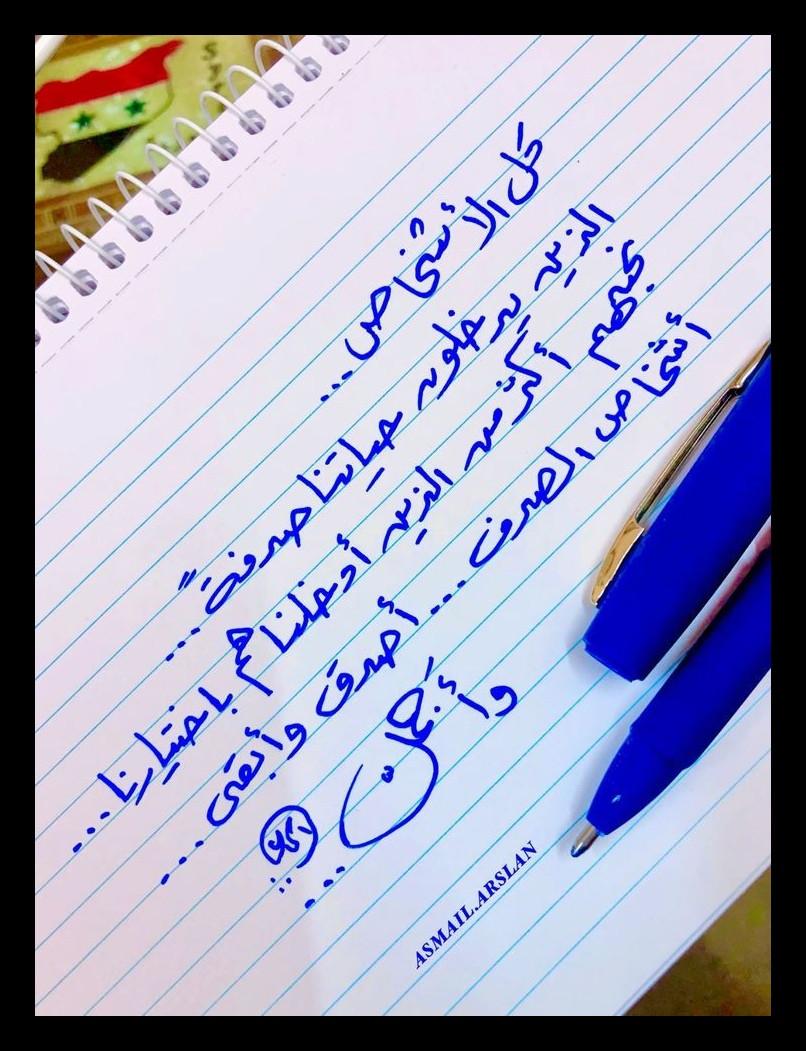 كل الأشخاص...
الذين يدخلون حياتنا صدفةً...
نحبهم أكثر من الذين أدخلناهم باختيارنا...
أشخاص الصدف... أصدق وأنقى...
وأجمل...
ASMAIL.ARSLAN